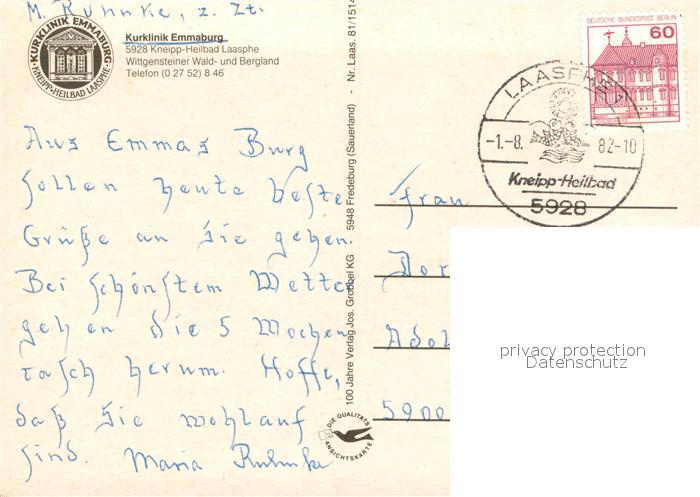 M. Ruhnke, z. Zt.
KURKLINIK EMMABURG
KNEIPP-HEILBAD LAASPHE
Kurklinik Emmaburg
5928 Kneipp-Heilbad Laasphe
Wittgensteiner Wald- und Bergland
Telefon (0 27 52) 8 46
Aus Emmas Burg
sollen heute beste
Grüße an Sie gehen.
Bei schönstem Wette
gehen die 5 Wochen
rasch herum. Hoffe,
daß Sie wohlauf
sind. Maria Ruhnke
100 Jahre Verlag Jos. Grobbel KG 5948 Fredeburg (Sauerland) - Nr. Laas. 81/1514
DIE QUALITÄTS
ANSICHTSKARTE
DEUTSCHE BUNDESPOST BERLIN
60
LAASPHE
-1.-8. 82-10
Kneipp-Heilbad
5928
Frau
Dor
Adol
5900
privacy protection
Datenschutz